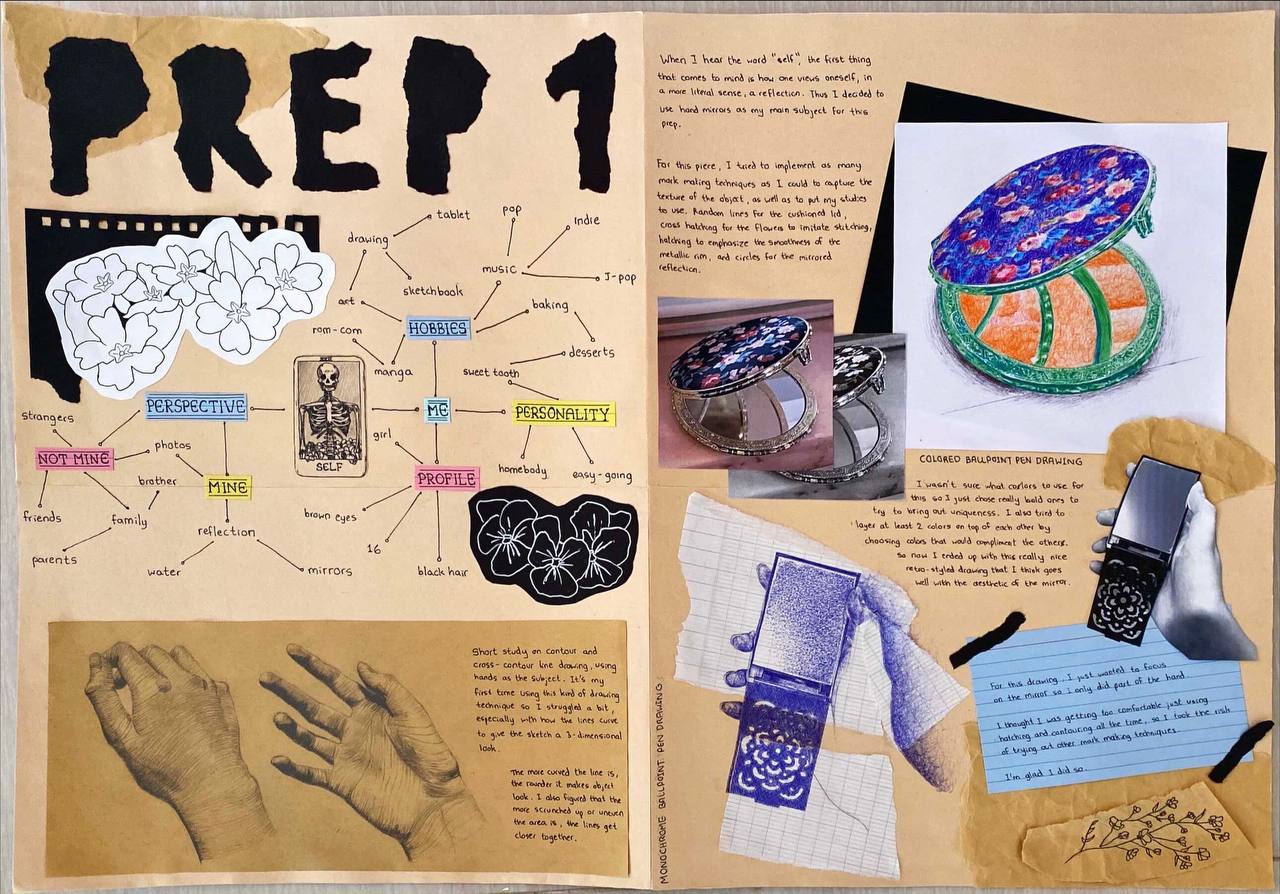 PREP 1
tablet
pop
indie
drawing
music
J-pop
sketchbook
art
baking
rom-com
HOBBIES
manga
desserts
sweet tooth
PERSPECTIVE
ME
PERSONALITY
strangers
girl
SELF
NOT MINE
photos
homebody
easy-going
brother
MINE
PROFILE
friends
family
brown eyes
reflection
16
parents
water
mirrors
black hair
Short study on contour and
cross-contour line drawing, using
hands as the subject. It's my
first time using this kind of drawing
technique so I struggled a bit,
especially with how the lines curve
to give the sketch a 3-dimensional
look.
The more curved the line is,
the rounder it makes object
look. I also figured that the
more scrunched up or uneven
the area is, the lines get
closer together.
When I hear the word "self", the first thing
that comes to mind is how one views oneself, in
a more literal sense, a reflection. Thus I decided to
use hand mirrors as my main subject for this
prep.
For this piece, I tried to implement as many
mark making techniques as I could to capture the
texture of the object, as well as to put my studies
to use. Random lines for the cushioned lid,
cross hatching for the flowers to imitate stitching,
hatching to emphasize the smoothness of the
metallic rim, and circles for the mirrored
reflection.
COLORED BALLPOINT PEN DRAWING
I wasn't sure what colors to use for
this so I just chose really bold ones to
try to bring out uniqueness. I also tried to
layer at least 2 colors on top of each other by
choosing colors that would compliment the others.
so now I ended up with this really nice
retro-styled drawing that I think goes
well with the aesthetic of the mirror.
MONOCHROME BALLPOINT PEN DRAWING
For this drawing, I just wanted to focus
on the mirror so I only did part of the hand.
I thought I was getting too comfortable just using
hatching and contouring all the time, so I took the risk
of trying out other mark making techniques.
I'm glad I did so.